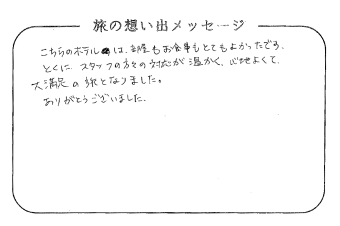 旅の想い出メッセージ
こちらのホテルは、部屋もお食事もとてもよかったです。
とくに、スタッフの方々の対応が温かく、心地よくて、
大満足の旅となりました。
ありがとうございました。